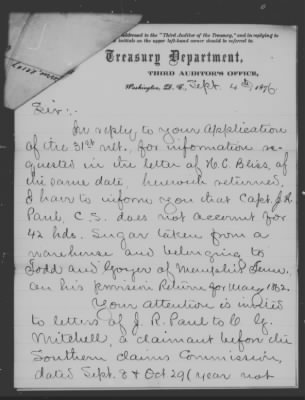 addressed to the "Third Auditor of the Treasury," and in replying to
initials on the upper left-hand corner should be referred to.
Treasury Department,
THIRD AUDITOR'S OFFICE,
Washington, D. C., Sept. 4th, 1876.
Sir:
In reply to your application
of the 31st ult. for information re-
quested in the letter of H.C. Bliss, of
the same date, herewith returned,
I have to inform you that Capt. J.R.
Paul, C.S. does not account for
42 hds. Sugar taken from a
warehouse and belonging to
Todd and Goyer of Memphis Tenn.
on his provision Return for May 1862.
Your attention is invited
to letters of J. R. Paul to C. G.
Mitchell, a claimant before the
Southern claims Commission,
dated Sept. 8 & Oct 29 (year not